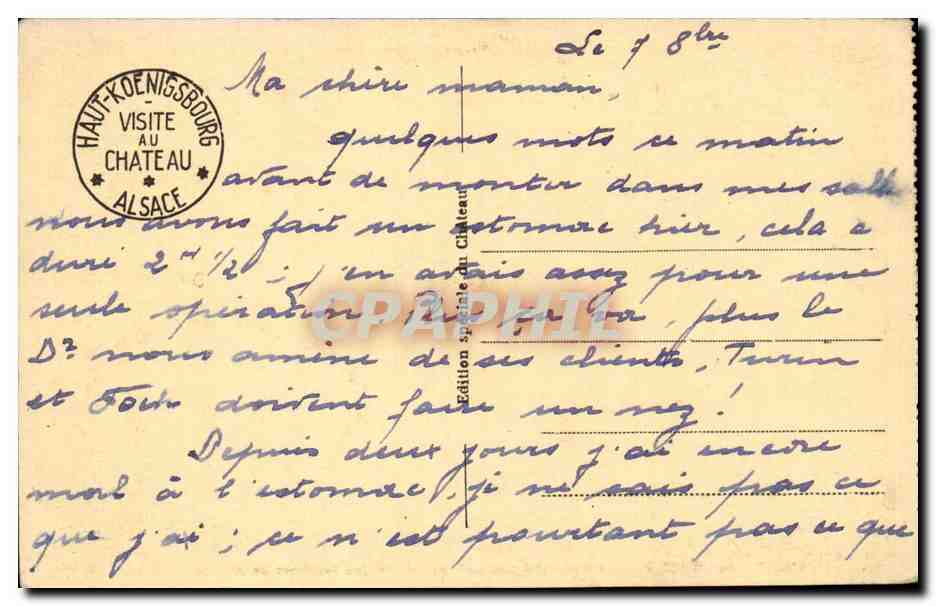 Le 7 8bre
HAUT-KOENIGSBOURG
VISITE
AU
CHATEAU
ALSACE
Ma chère maman,
quelques mots ce matin
avant de monter dans mes salles
nous avons fait un estomac hier, cela a
duré 2 h 1/2 ; j'en avais assez pour une
seule opération. Plus ça va, plus le
Dr nous amène de ses clients, Turin
et Foch doivent faire un nez !
Depuis deux jours j'ai encore
mal à l'estomac, je ne sais pas ce
que j'ai ; ce n'est pourtant pas ce que
Edition spéciale du Château
CPAPHIL